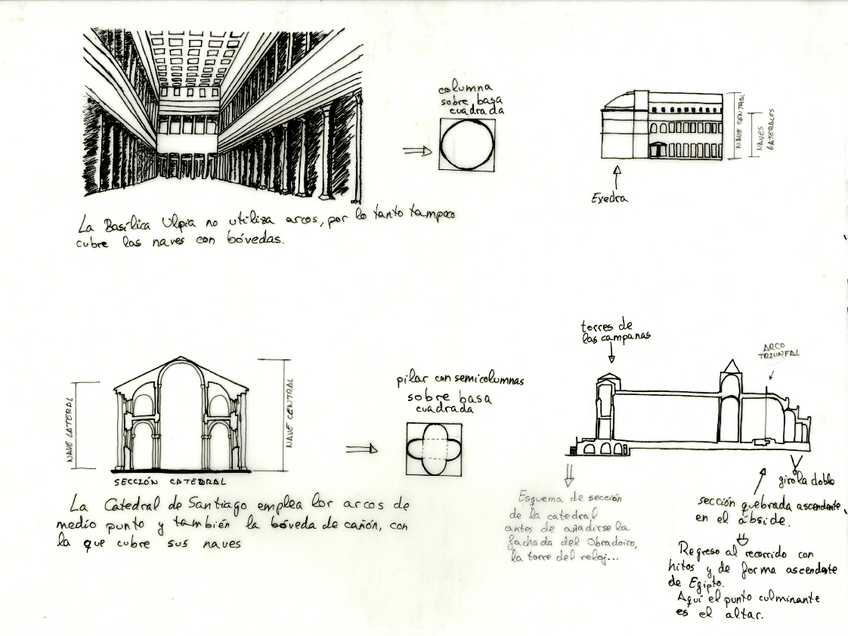 columna
sobre basa
cuadrada
NAVE CENTRAL
NAVES
LATERALES
Exedra
La Basílica Ulpia no utiliza arcos, por lo tanto tampoco
cubre las naves con bóvedas.
torres de
las campanas
ARCO
TRIUNFAL
NAVE LATERAL
NAVE CENTRAL
pilar con semicolumnas
sobre basa
cuadrada
SECCIÓN CATEDRAL
La Catedral de Santiago emplea los arcos de
medio punto y también la bóveda de cañón, con
la que cubre sus naves
Esquema de sección
de la catedral
antes de añadirse la
fachada del Obradoiro,
la torre del reloj...
girola doble
sección quebrada ascendente
en el ábside.
Regreso al recorrido con
hitos y de forma ascendente
de Egipto.
Aquí el punto culminante
es el altar.